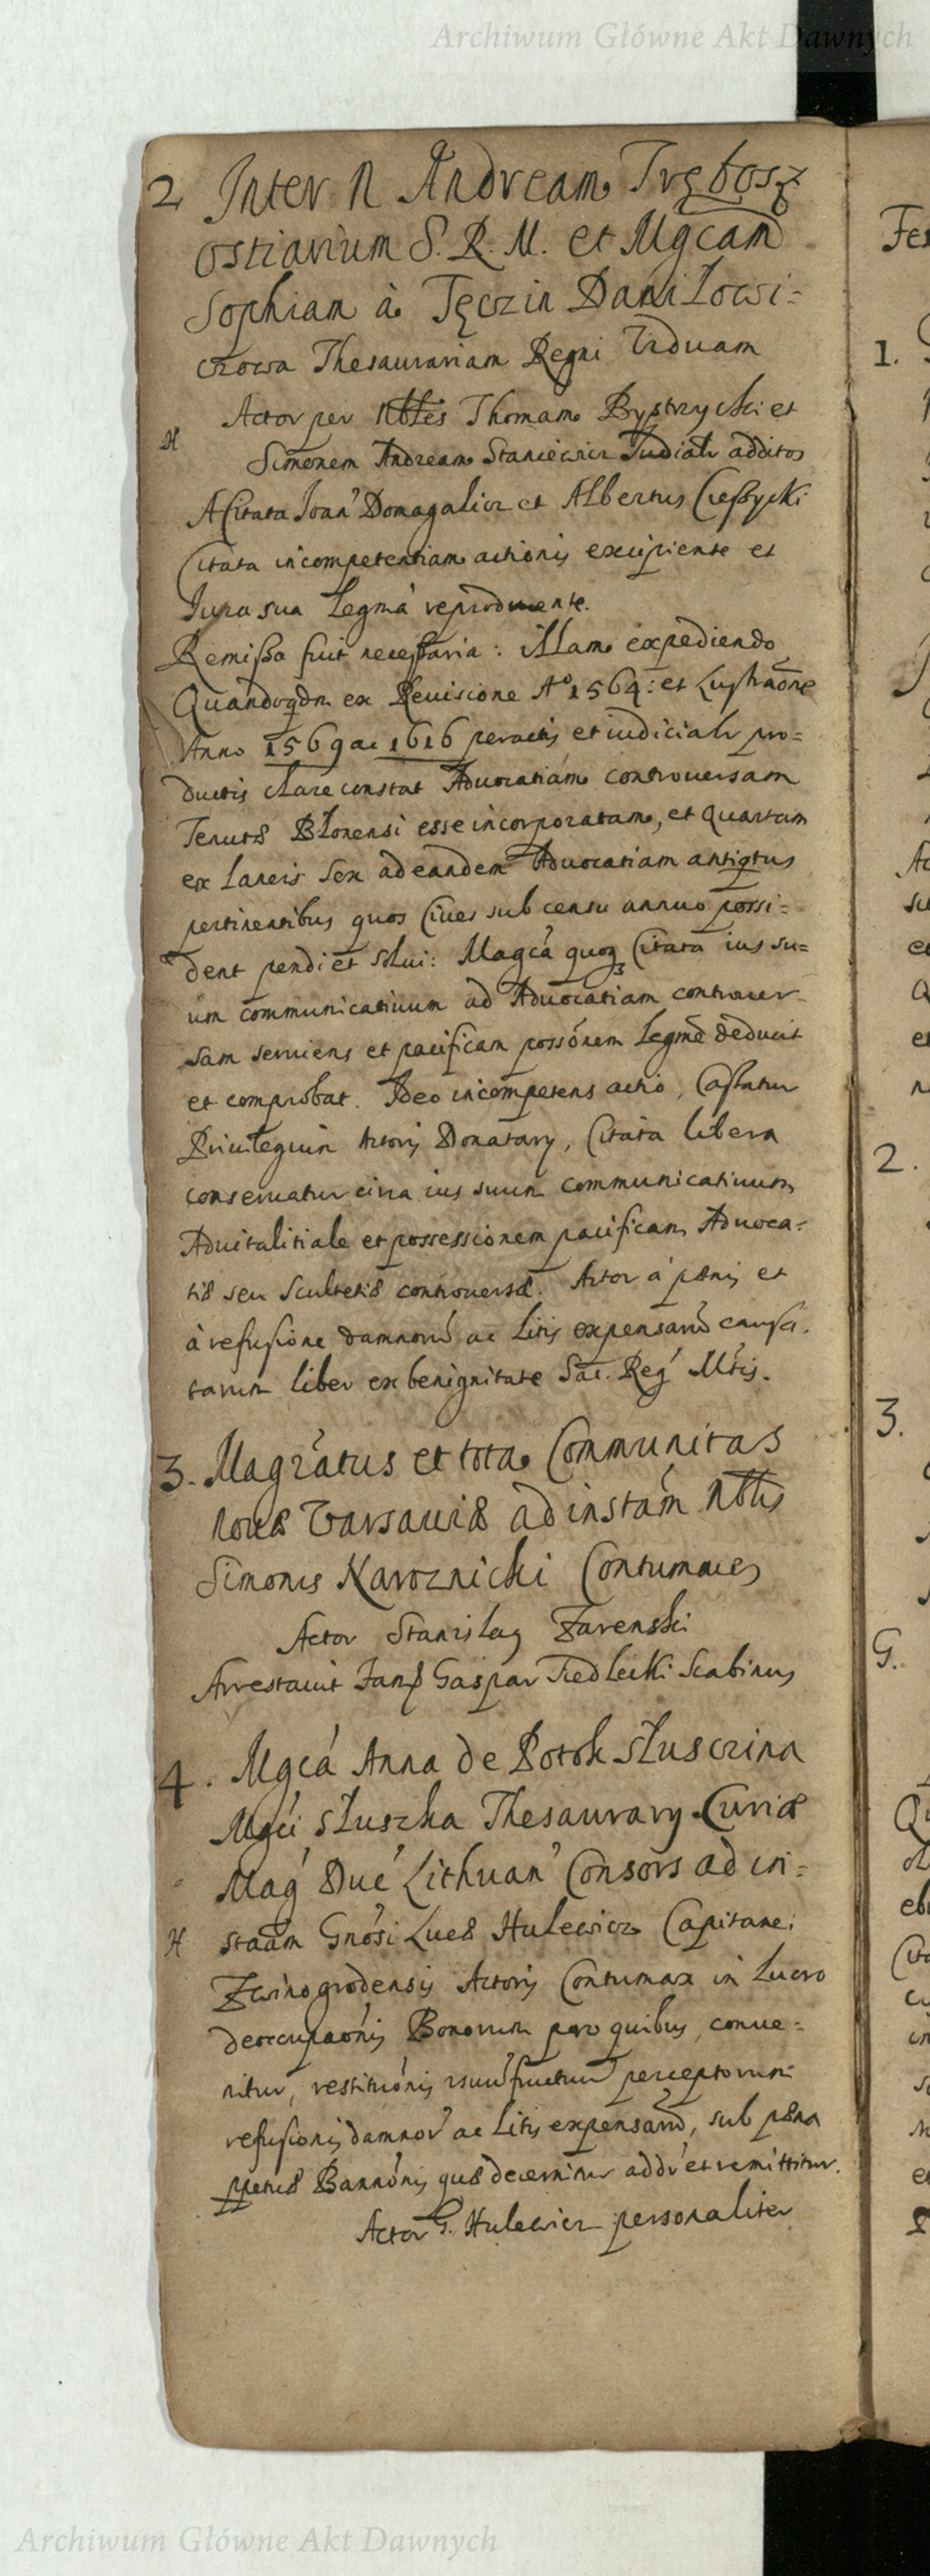 Archiwum Główne Akt Dawnych
2 Inter N Andream Trębosz
ostiarium S. R. M. et Mgcam
Sophiam à Tęczin Daniłowi-
czowa Thesaurariam Regni Viduam
Actor per Nbles Thomam Bystrzycki et
H Simonem Andream Staniewicz Judialr additos
A Citata Joan Domagalicz et Albertus
Citata incompetentiam actionis excipiente et
Jura sua legmà reproducente.
Remissa fuit necessaria: illam expediendo
Quandoqdm ex Reuisione Aº 1564: et Lustraõne
Anno 1569 ac 1616 peractis et iudicialr pro-
ductis clare constat Aduocatiam controuersam
Tenutæ Blonensi esse incorporatam, et quartam
ex laneis sex ad eandem Aduocatiam antiqtus
pertinentibus quos Ciues sub censu annuo possi-
dent pendi et solui: Magcá quoq Citata ius su-
um communicatiuum ad Aduocatiam controuer-
sam seruiens et pacificam possónem legmè deducit
et comprobat. Ideo incompetens actio, Cassatur
Priuilegium Actoris Donatary, Citata libera
conseruatur circa ius suum communicatiuum
Aduitalitiale et possessionem pacificam Aduoca-
tiæ seu Scultetiæ controuersæ. Actor á pænis et
à refusione damnorũ ac Litis expensarũ causa-
tarum liber ex benignitate Sac. Reg Mtis.
3. Magrátus et tota Communitas
Nouæ Varsauiæ ad instám Nblis
Simonis Naroznicki Contumaces
Actor Stanislaus Zarenski
Arrestauit Fam Gaspar Siedlecki Scabinus
4. Mgcá Anna de Potok Słusczina
Mgci Słuszka Thesaurary Curiæ
Mag Duc Lithuan Consors ad in-
H staãm Gnósi Lucæ Hulewicz Capitanei
Zwinogrodensis Actoris Contumax in lucro
deoccupaónis Bonorum pro quibus conue-
nitur, restituónis usuũfructuũ perceptorum
refusionis damnor ac Litis expensarũ, sub pæna
ppetuæ Bannónis quæ decernitur addi et remittitur.
Actor G. Hulewicz personaliter
Fes
1.
2.
3.
G.
Archiwum Główne Akt Dawnych